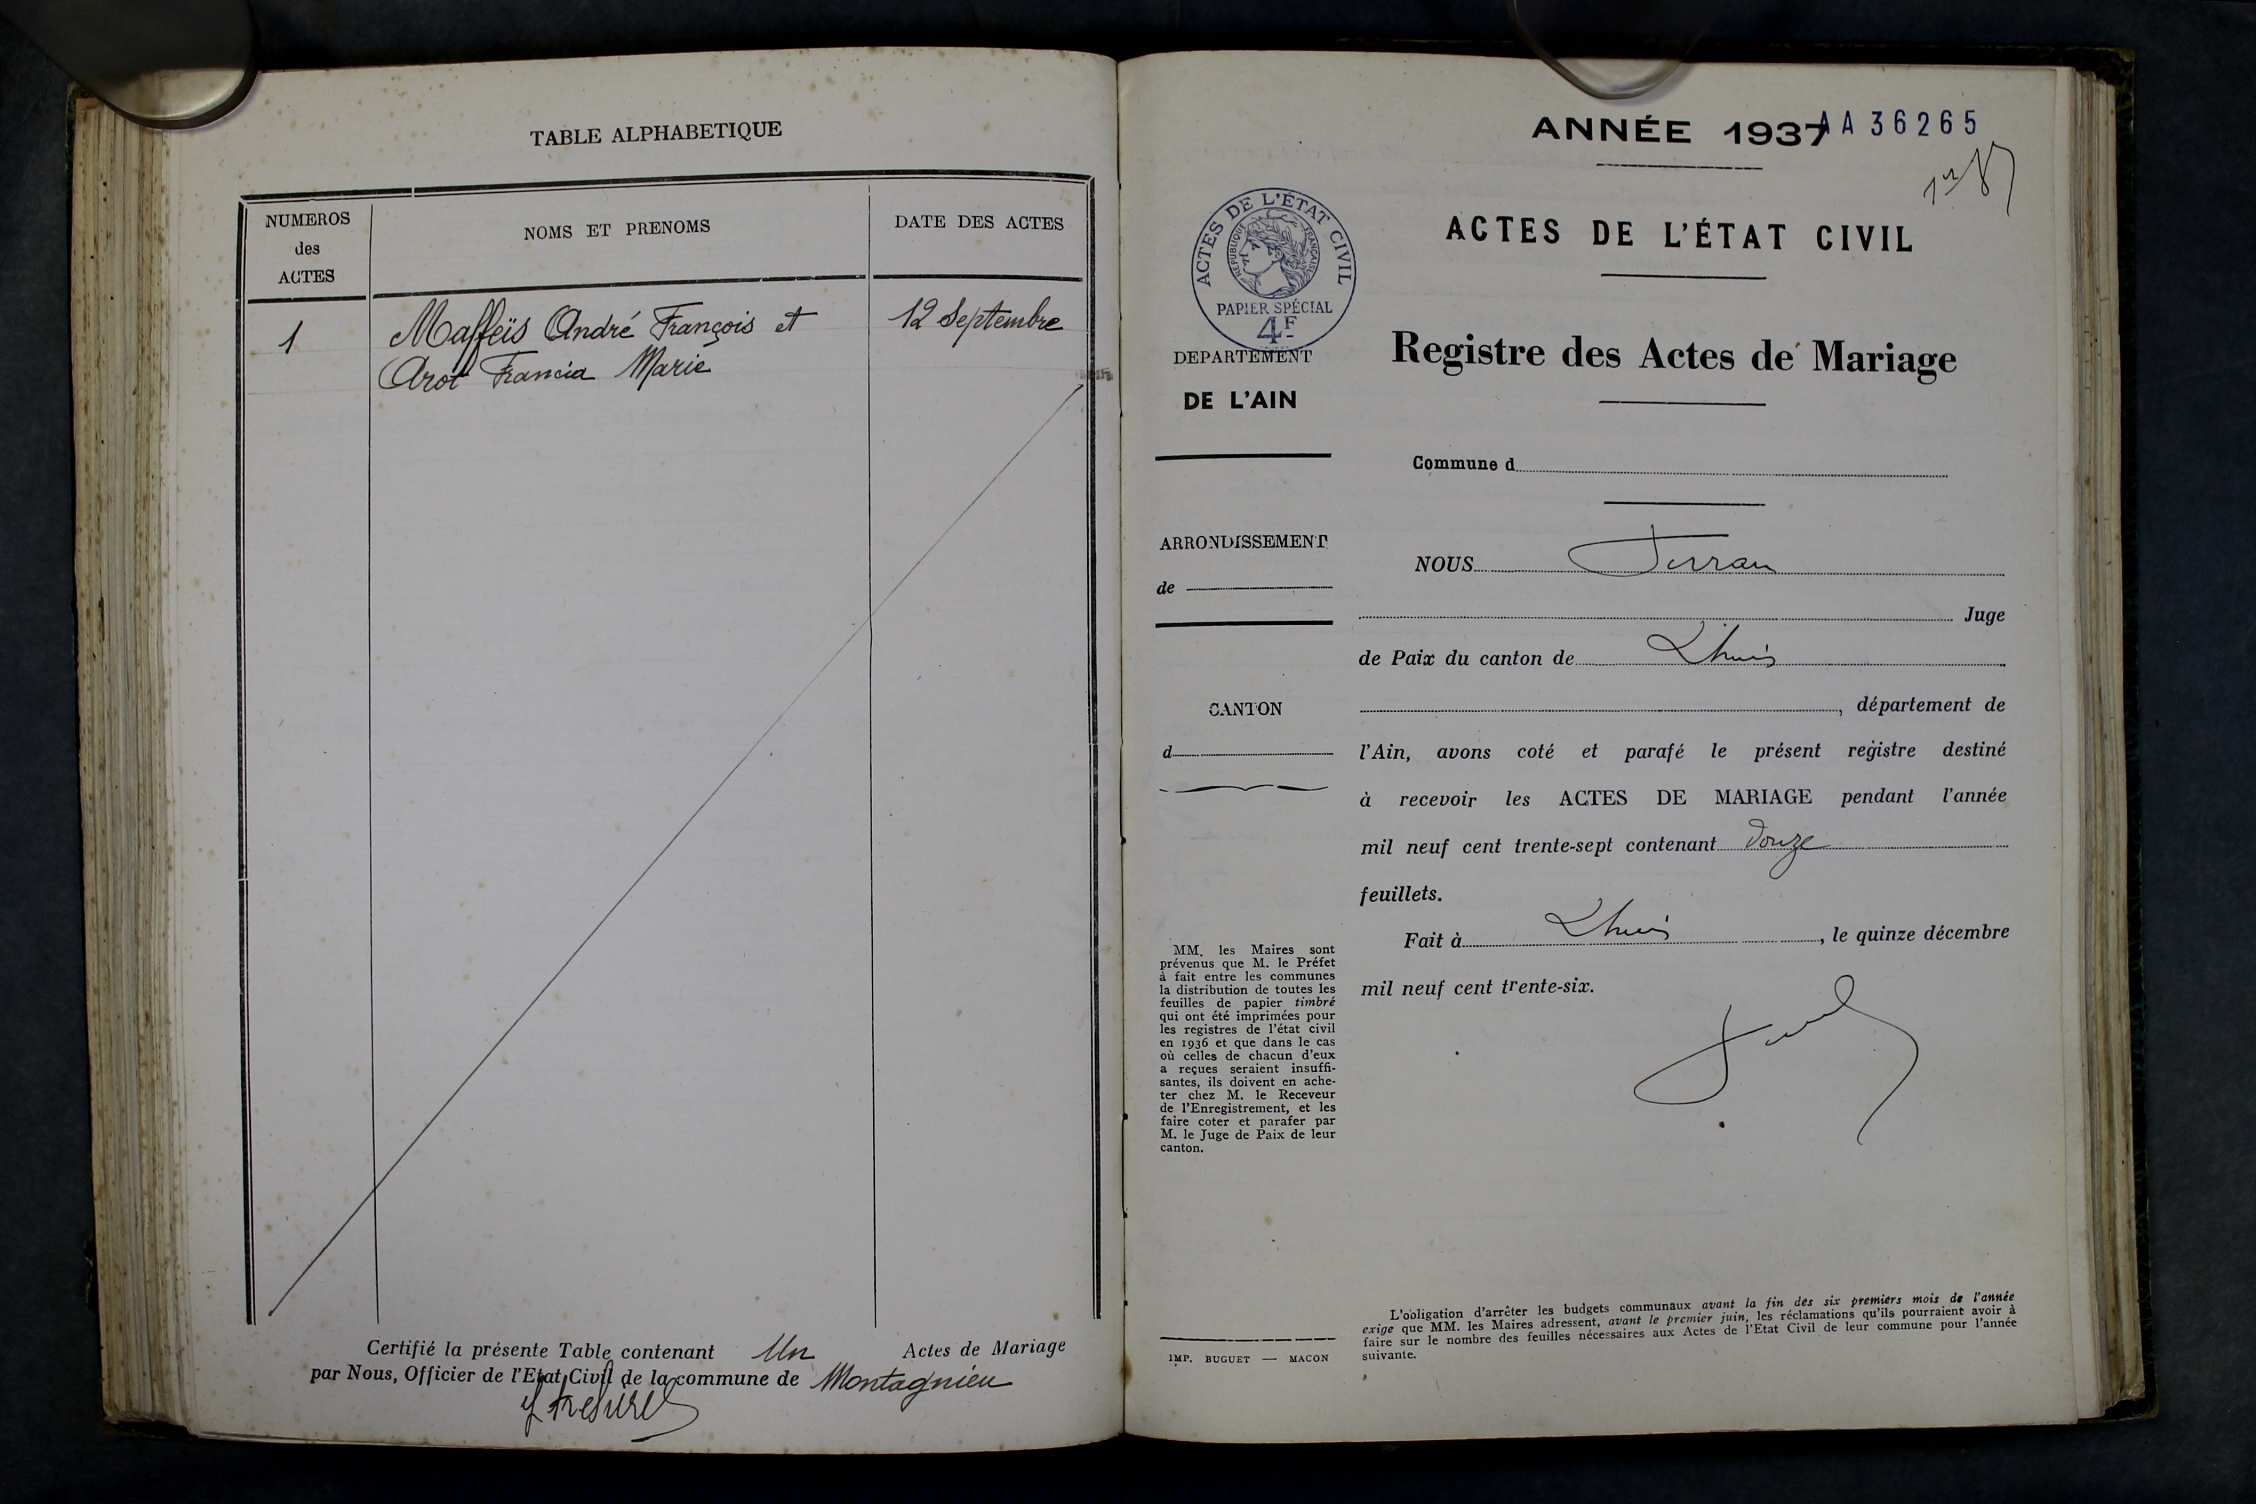 TABLE ALPHABETIQUE
NUMEROS
des
ACTES
NOMS ET PRENOMS
DATE DES ACTES
1
Maffeïs André François et
Arot Francia Marie
12 Septembre
Certifié la présente Table contenant Un Actes de Mariage
par Nous, Officier de l'Etat Civil de la commune de Montagnieu
ANNÉE 1937
AA 36265
ACTES DE L'ÉTAT CIVIL
RÉPUBLIQUE FRANÇAISE
PAPIER SPÉCIAL
4F
ACTES DE L'ÉTAT CIVIL
Registre des Actes de Mariage
DEPARTEMENT
DE L'AIN
Commune d
ARRONDISSEMENT
de
NOUS Ferran
Juge
de Paix du canton de Lhuis
CANTON
d
, département de
l'Ain, avons coté et parafé le présent registre destiné
à recevoir les ACTES DE MARIAGE pendant l'année
mil neuf cent trente-sept contenant douze
feuillets.
Fait à Lhuis, le quinze décembre
mil neuf cent trente-six.
MM. les Maires sont
prévenus que M. le Préfet
à fait entre les communes
la distribution de toutes les
feuilles de papier timbré
qui ont été imprimées pour
les registres de l'état civil
en 1936 et que dans le cas
où celles de chacun d'eux
a reçues seraient insuffi-
santes, ils doivent en ache-
ter chez M. le Receveur
de l'Enregistrement, et les
faire coter et parafer par
M. le Juge de Paix de leur
canton.
IMP. BUGUET — MACON
L'obligation d'arrêter les budgets communaux avant la fin des six premiers mois de l'année
exige que MM. les Maires adressent, avant le premier juin, les réclamations qu'ils pourraient avoir à
faire sur le nombre des feuilles nécessaires aux Actes de l'Etat Civil de leur commune pour l'année
suivante.